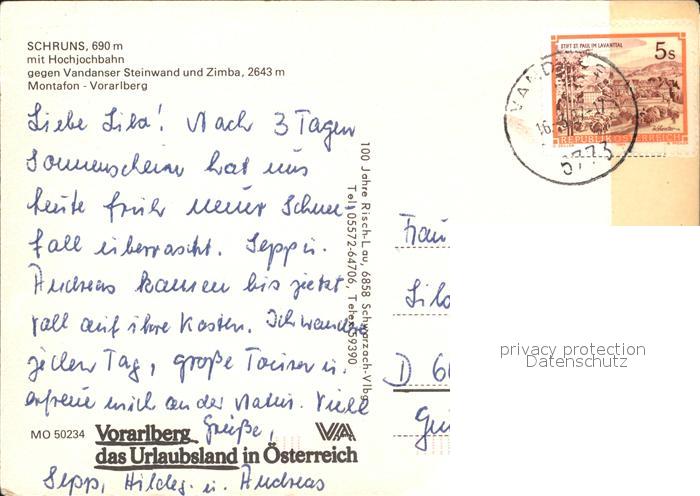 SCHRUNS, 690 m
mit Hochjochbahn
gegen Vandanser Steinwand und Zimba, 2643 m
Montafon - Vorarlberg
Liebe Silo! Nach 3 Tagen
Sonnenschein hat uns
heute früh neuer Schnee-
fall überrascht. Sepp u.
Andreas kamen bis jetzt
voll auf ihre Kosten. Ich wandere
jeden Tag, große Touren u.
erfreue mich an der Natur. Viele
Grüße,
Sepp, Hildeg. u. Andreas
MO 50234
Vorarlberg
das Urlaubsland in Österreich
VA
100 Jahre Risch-Lau, 6858 Schwarzach-Vlbg.
Tel. 05572-64706, Telex 59390
STIFT ST. PAUL IM LAVANTTAL
5s
REPUBLIK ÖSTERREICH
VANDANS
16.
6773
Frau
D 6
privacy protection
Datenschutz